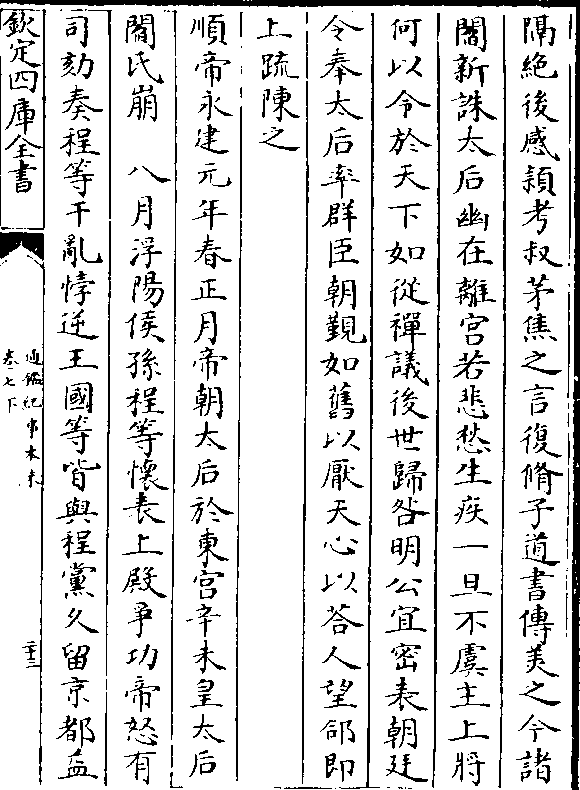 隔絶後感潁考叔茅焦之言復脩子道書傳美之今諸
閻新誅太后幽在離宮若悲愁生疾一旦不虞主上將
何以令於天下如從禪議後世歸咎明公宜密表朝廷
令奉太后率群臣朝覲如舊以厭天心以荅人望郃即
上疏陳之
順帝永建元年春正月帝朝太后於東宮辛未皇太后
閻氏崩　八月浮陽侯孫程等懷表上殿爭功帝怒有
司劾奏程等干亂悖逆王國等皆與程黨久留京都益
欽定四庫全書
通鑑紀事本末
卷七下
二十三